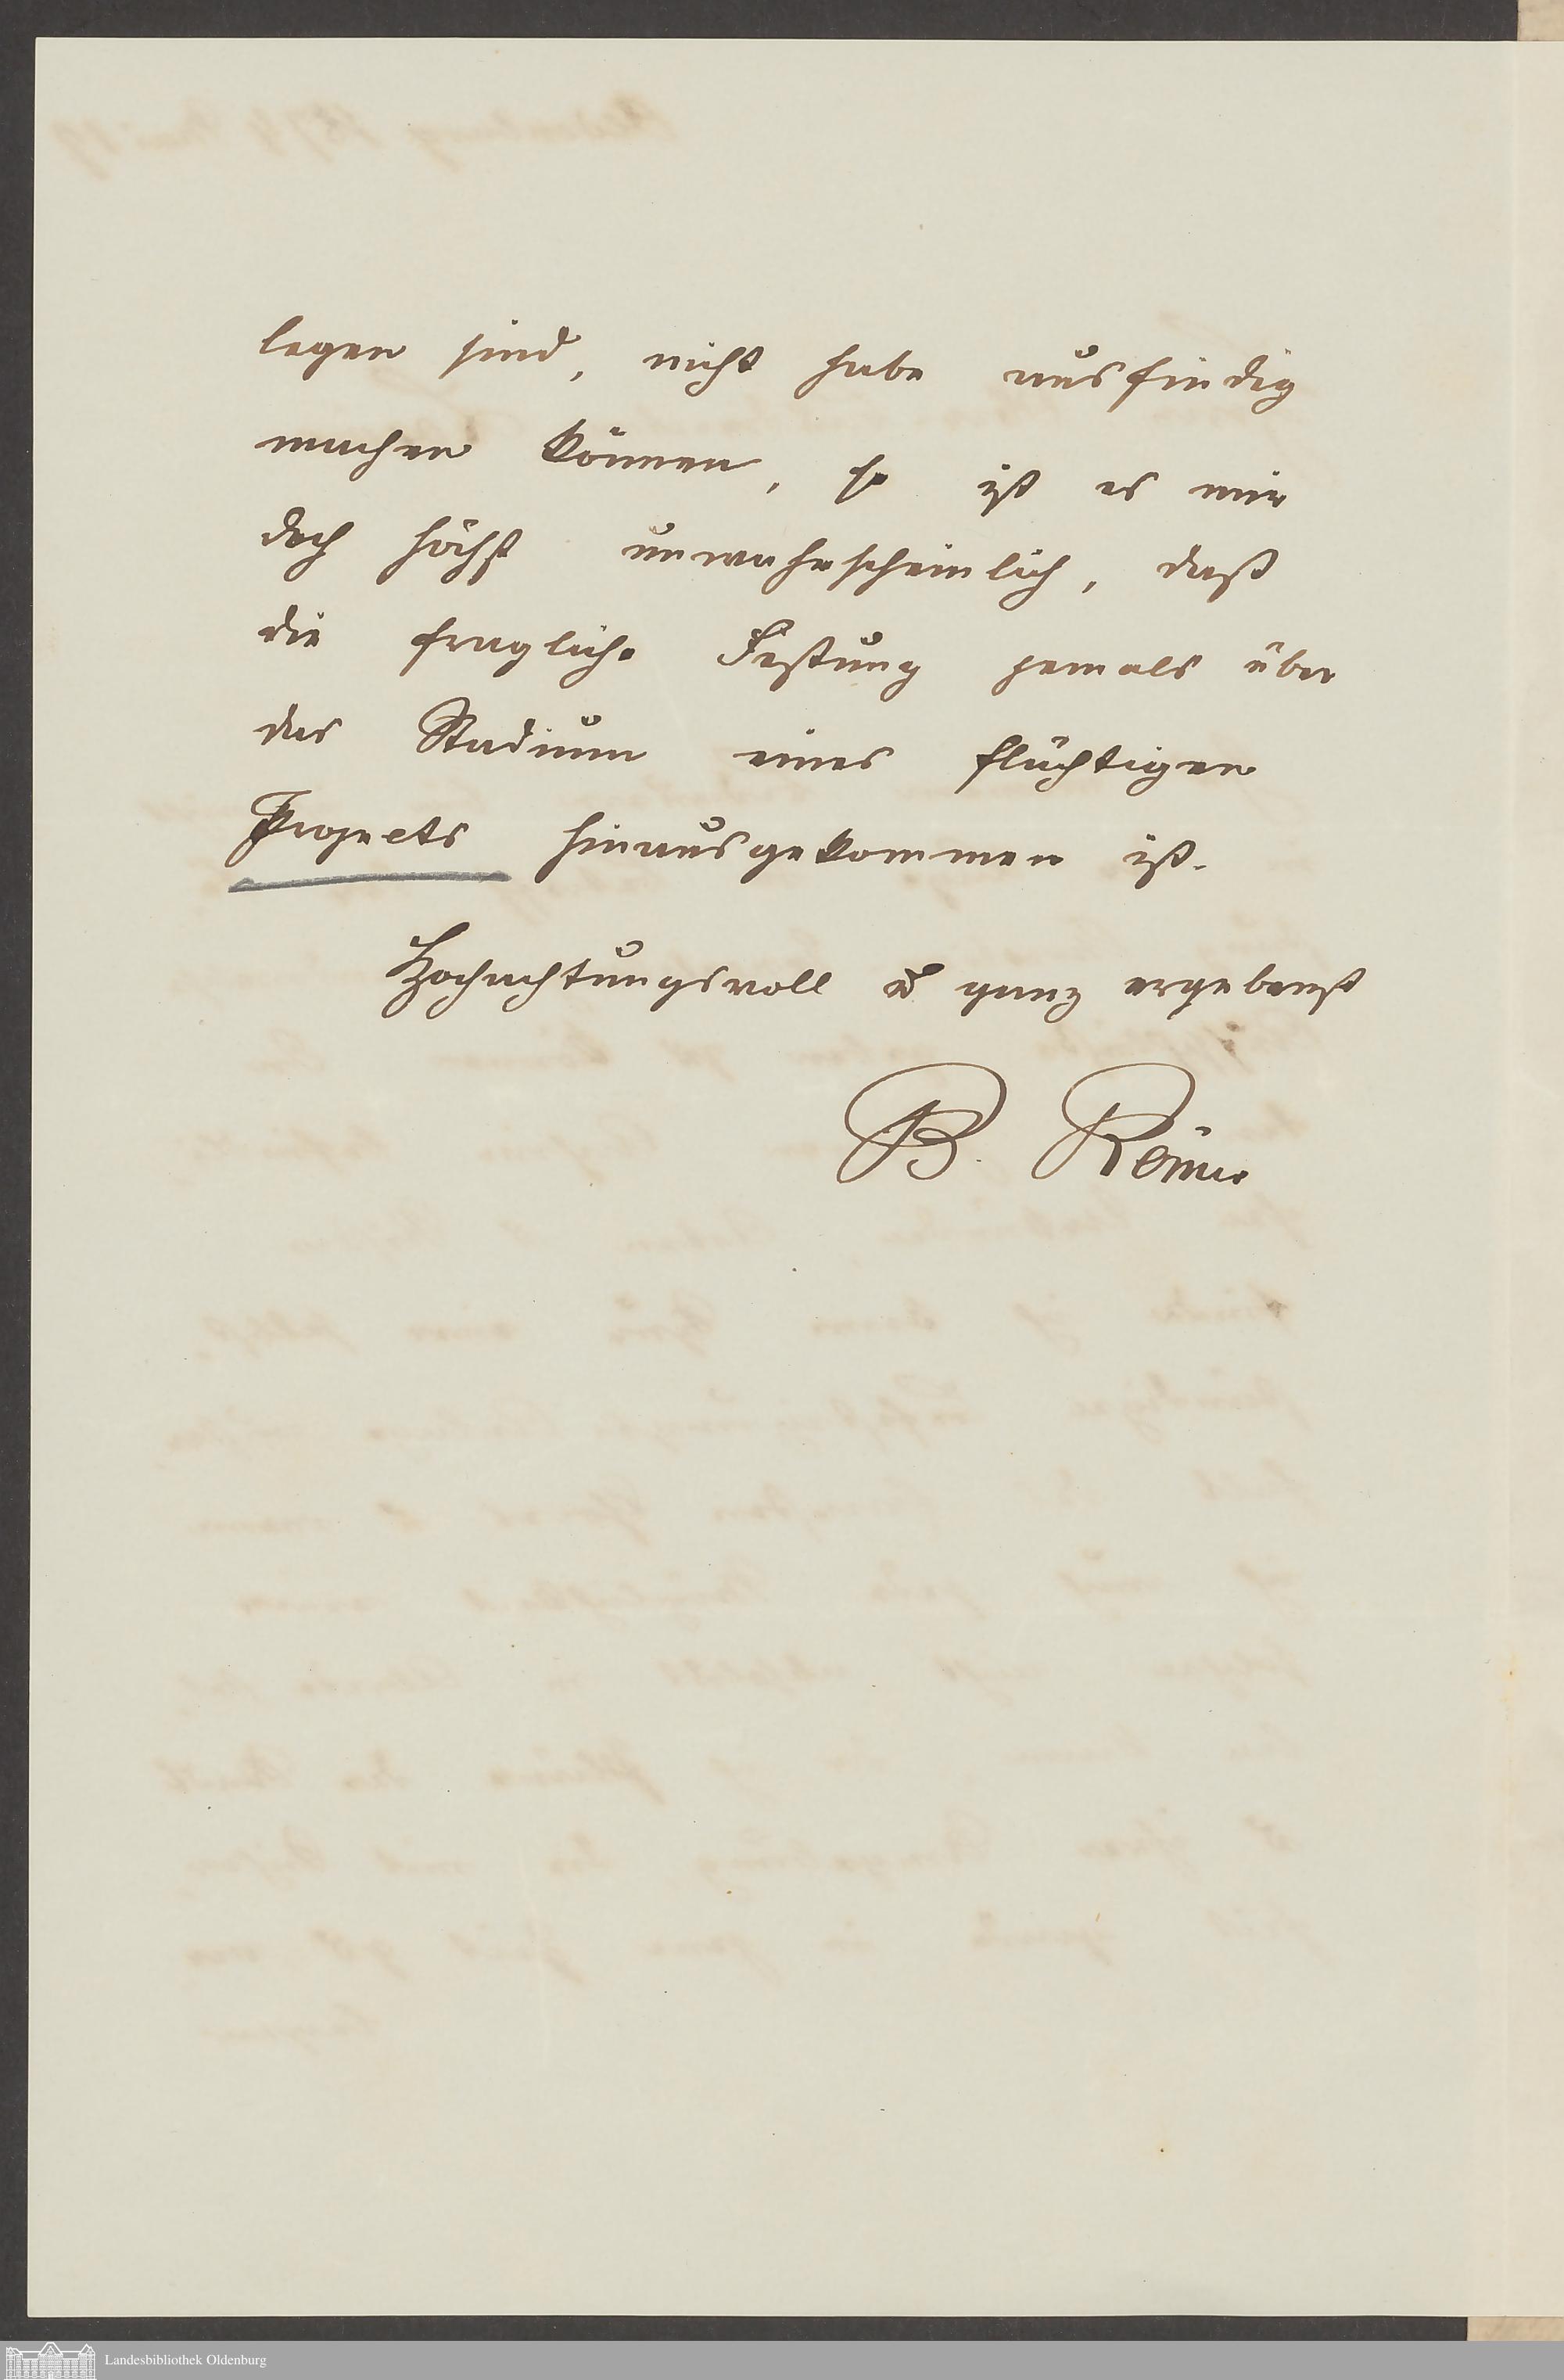 legen sind, nicht habe ausfindig
machen können, so ist es mir
doch höchst unwahrscheinlich, daß
die fragliche Festung jemals über
das Stadium eines flüchtigen
Projects hinausgekommen ist.
Hochachtungsvoll u ganz ergebenst
B. Römer
Landesbibliothek Oldenburg